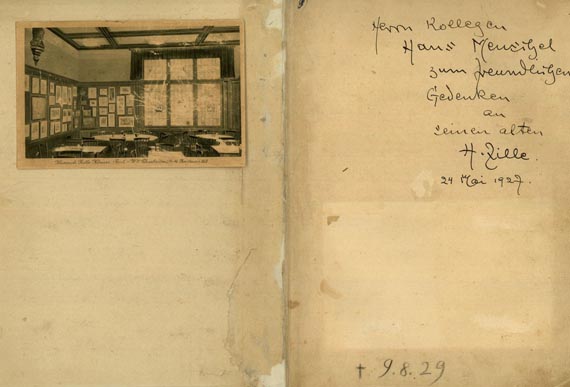 Heinrich Zille
Herrn Kollegen
Hans Menzel
zum freundlichen
Gedenken
an
seinen alten
H. Zille.
24 Mai 1927.
† 9.8.29